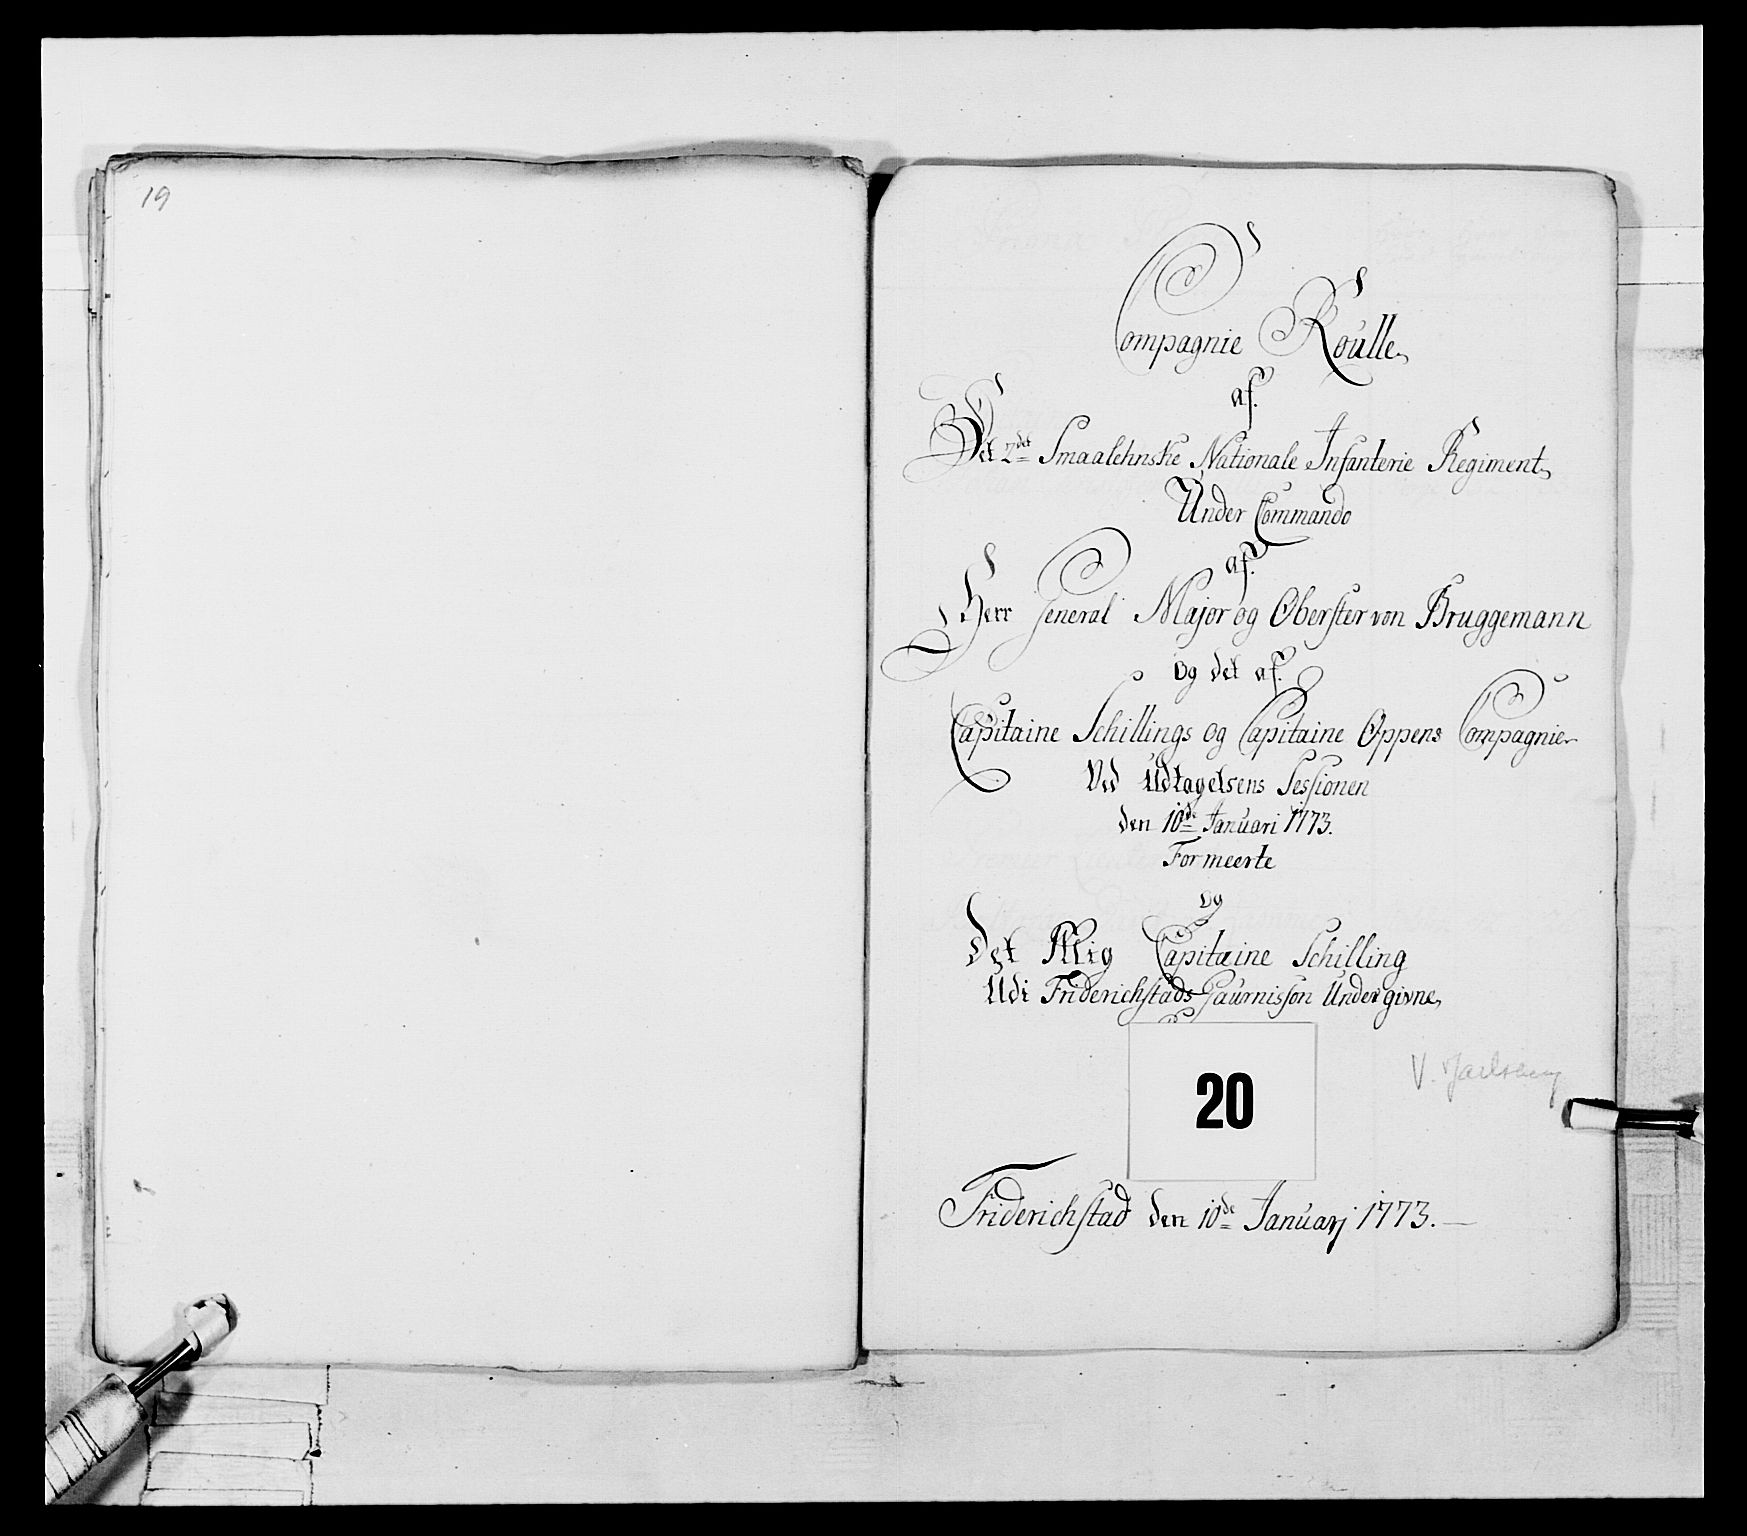 19
Compagnie Roulle,
af.
Det 2det Smaalehnske Nationale Infanterie Regiment,
Under Commando
af.
Herr General Major og Oberster von Bruggemann
Og det af.
Capitaine Schillings og Capitaine Oppens Compagnier
Ved Udtagelsens Sessionen
den 10de Januari 1773.
Formeerte
og
Det Mig Capitaine Schilling
Udi Friderichstads Gaurnisson Undergivne,
V.
20
Friderichstad den 10de Januarj 1773.